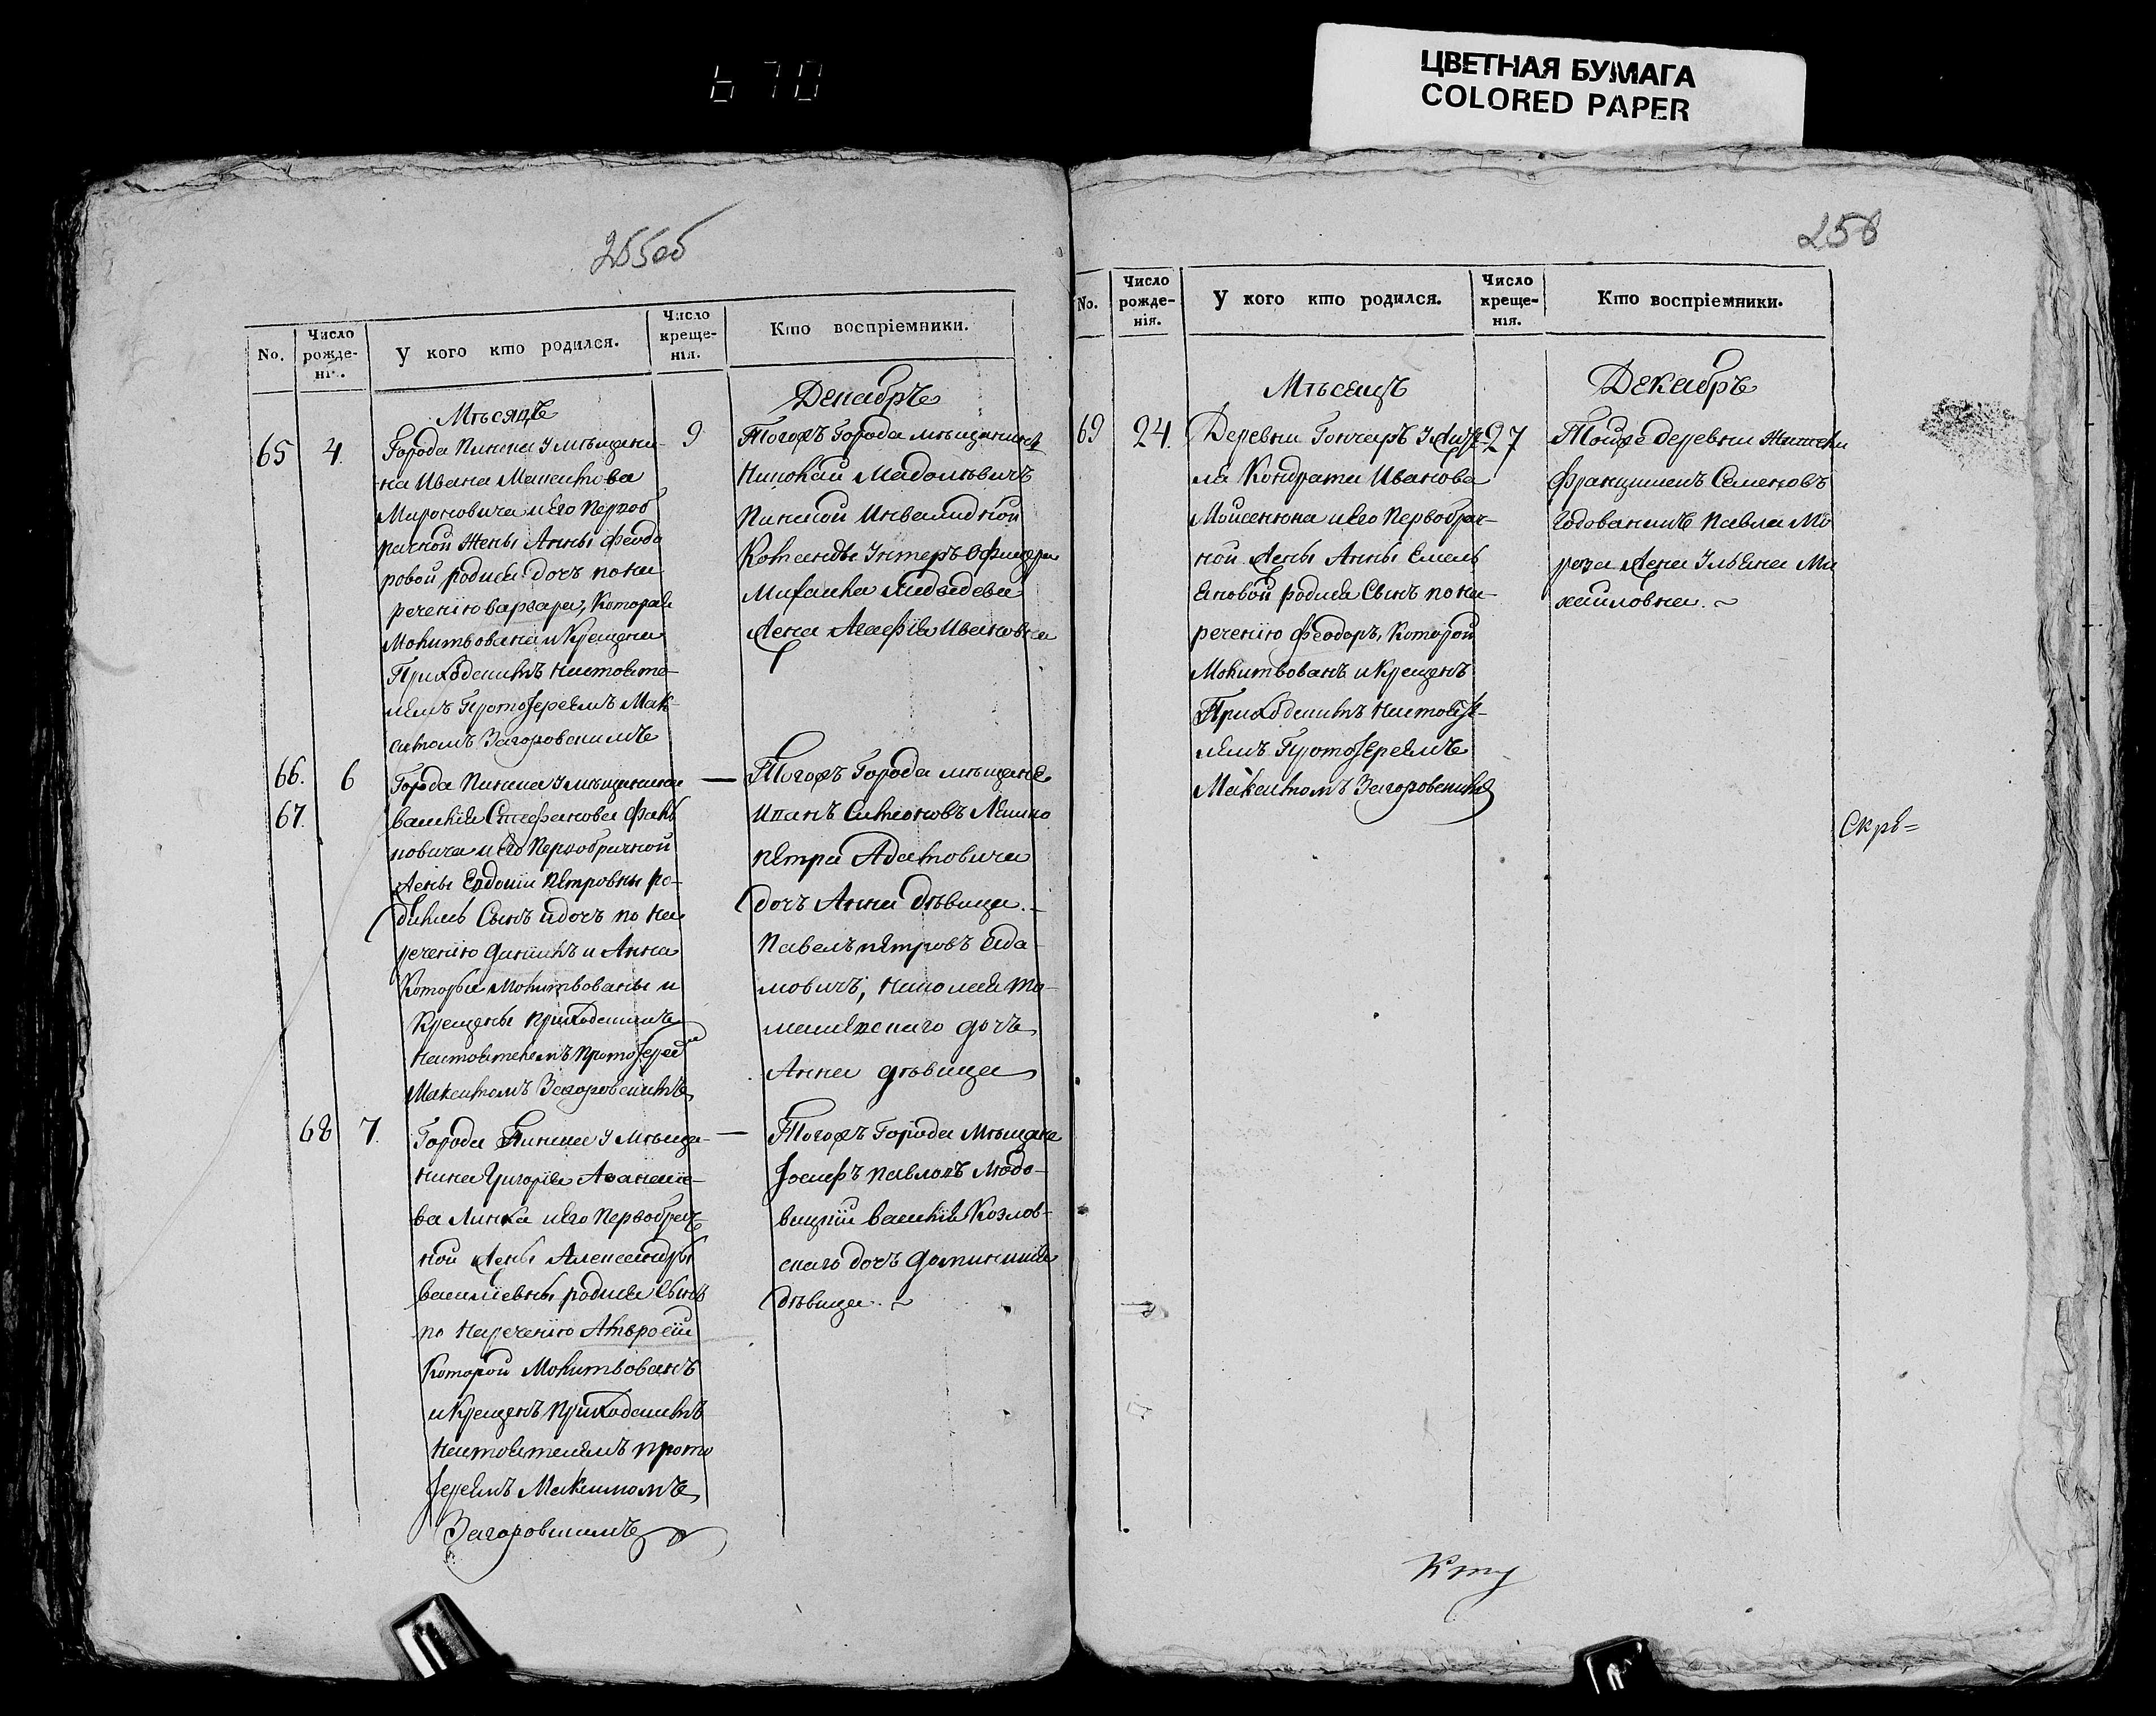 670
ЦВЕТНАЯ БУМАГА
COLORED PAPER
255об
No.
Число рожде-нія.
У кого кто родился.
Число креще-нія.
Кто воспріемники.
Мѣсяцъ
Декабрь
65
4.
Города Пинска У мѣщани-
на Ивана Максимова
Мироновича и Его Первоб
рачной Жены Анны Феодо
ровой родися дочъ по на
речению варвара, Которая
Молитвована и Крещена
Приходскимъ Настояте-
лемъ ПротоІереемъ Мак-
симомъ Загоровскимъ
9
Тогожъ Города мѣщанинъ
Николай
Пинской Инвалидной
Команды Унтеръ Офицера
Михаила Медведева
Жена Агафія Ивановна
66.
67.
6
Города Пинска У мѣщанина
василія Стефанова
новича и Его Первобрачной
Жены Евдокіи Петровны ро-
дились Сынъ и дочъ по на
речению и Анна
Которые Молитвованы и
Крещены Приходскимъ
Настоятелемъ ПротоІерее
Максимомъ Загоровскимъ
—
Тогожъ Города мѣщане
Иванъ Симоновъ
Петра Адамовича
дочъ Анна дѣвица.
Павелъ Петровъ Ада
мовичъ, Николая То-
дочъ
Анна дѣвица
68
7.
Города Пинска У Мѣща-
нина Григорія Афанасіе-
ва Линка и Его Первобрач-
ной Жены Александры
василіевны родися Сынъ
по Наречению Амвросій
Которой Молитвованъ
и Крещенъ Приходскимъ
Настоятелемъ прото
Іереемъ Максимомъ
Загоровскимъ
—
Тогожъ Города Мѣщане
Іосифъ Павловъ Людо-
вицкій василія Козлов-
скаго дочъ Доминикія
дѣвица.
258
No.
Число рожде-нія.
У кого кто родился.
Число креще-нія.
Кто воспріемники.
Мѣсяцъ
Декабрь
69
24.
Деревни Гончаръ У Жите-
ля Кондрата Иванова
Мойсенюка и Его Первобрач-
ной Жены Анны Емель
Яновой родися Сынъ по на-
речению Феодоръ, Которой
Молитвованъ и Крещенъ
Приходскимъ Настояте-
лемъ ПротоІереемъ
Максимомъ Загоровскимъ
27
Тойже деревни Жители
Францишекъ Семеновъ
Павла Мо
роза Жена Ульяна Ми
хайловна.
Скрѣ=
Кту